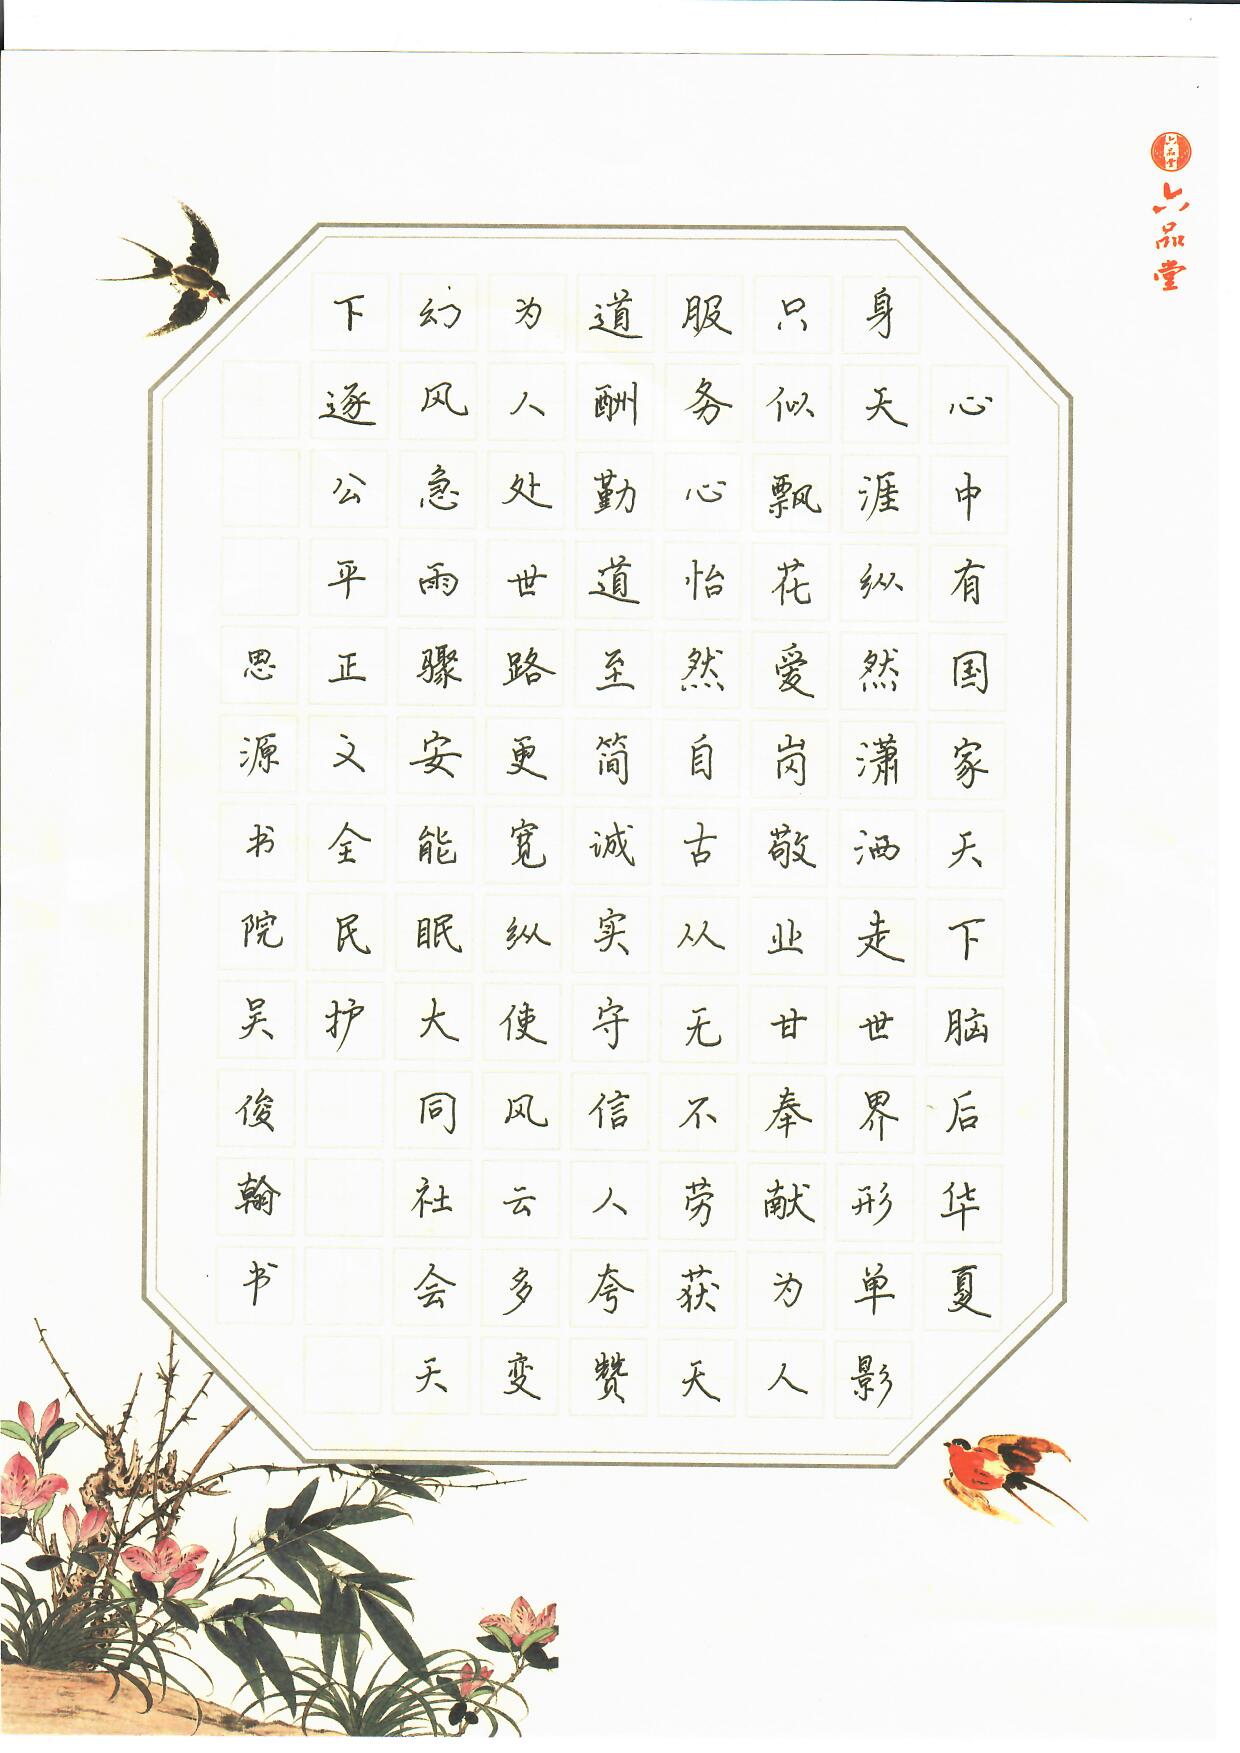 六品堂
六品堂
心中有国家天下脑后华夏
身天涯纵然潇洒走世界形单影
只似飘花爱岗敬业甘奉献为人
服务心怡然自古从无不劳获天
道酬勤道至简诚实守信人夸赞
为人处世路更宽纵使风云多变
幻风急雨骤安能眠大同社会天
下逐公平正文全民护
思源书院吴俊翰书